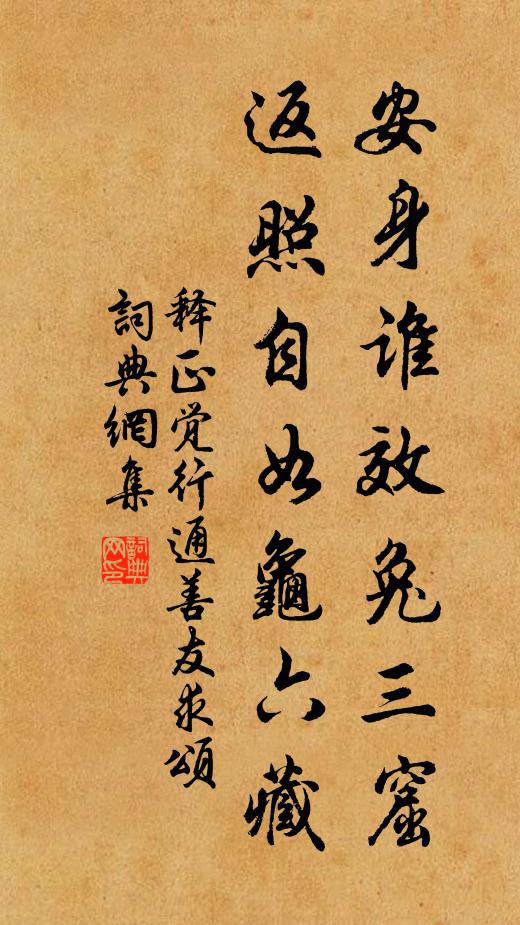 安身谁效兔三窟
返照自如龜六藏
释正覺行通善友求頌
詞典網集
詞典网印